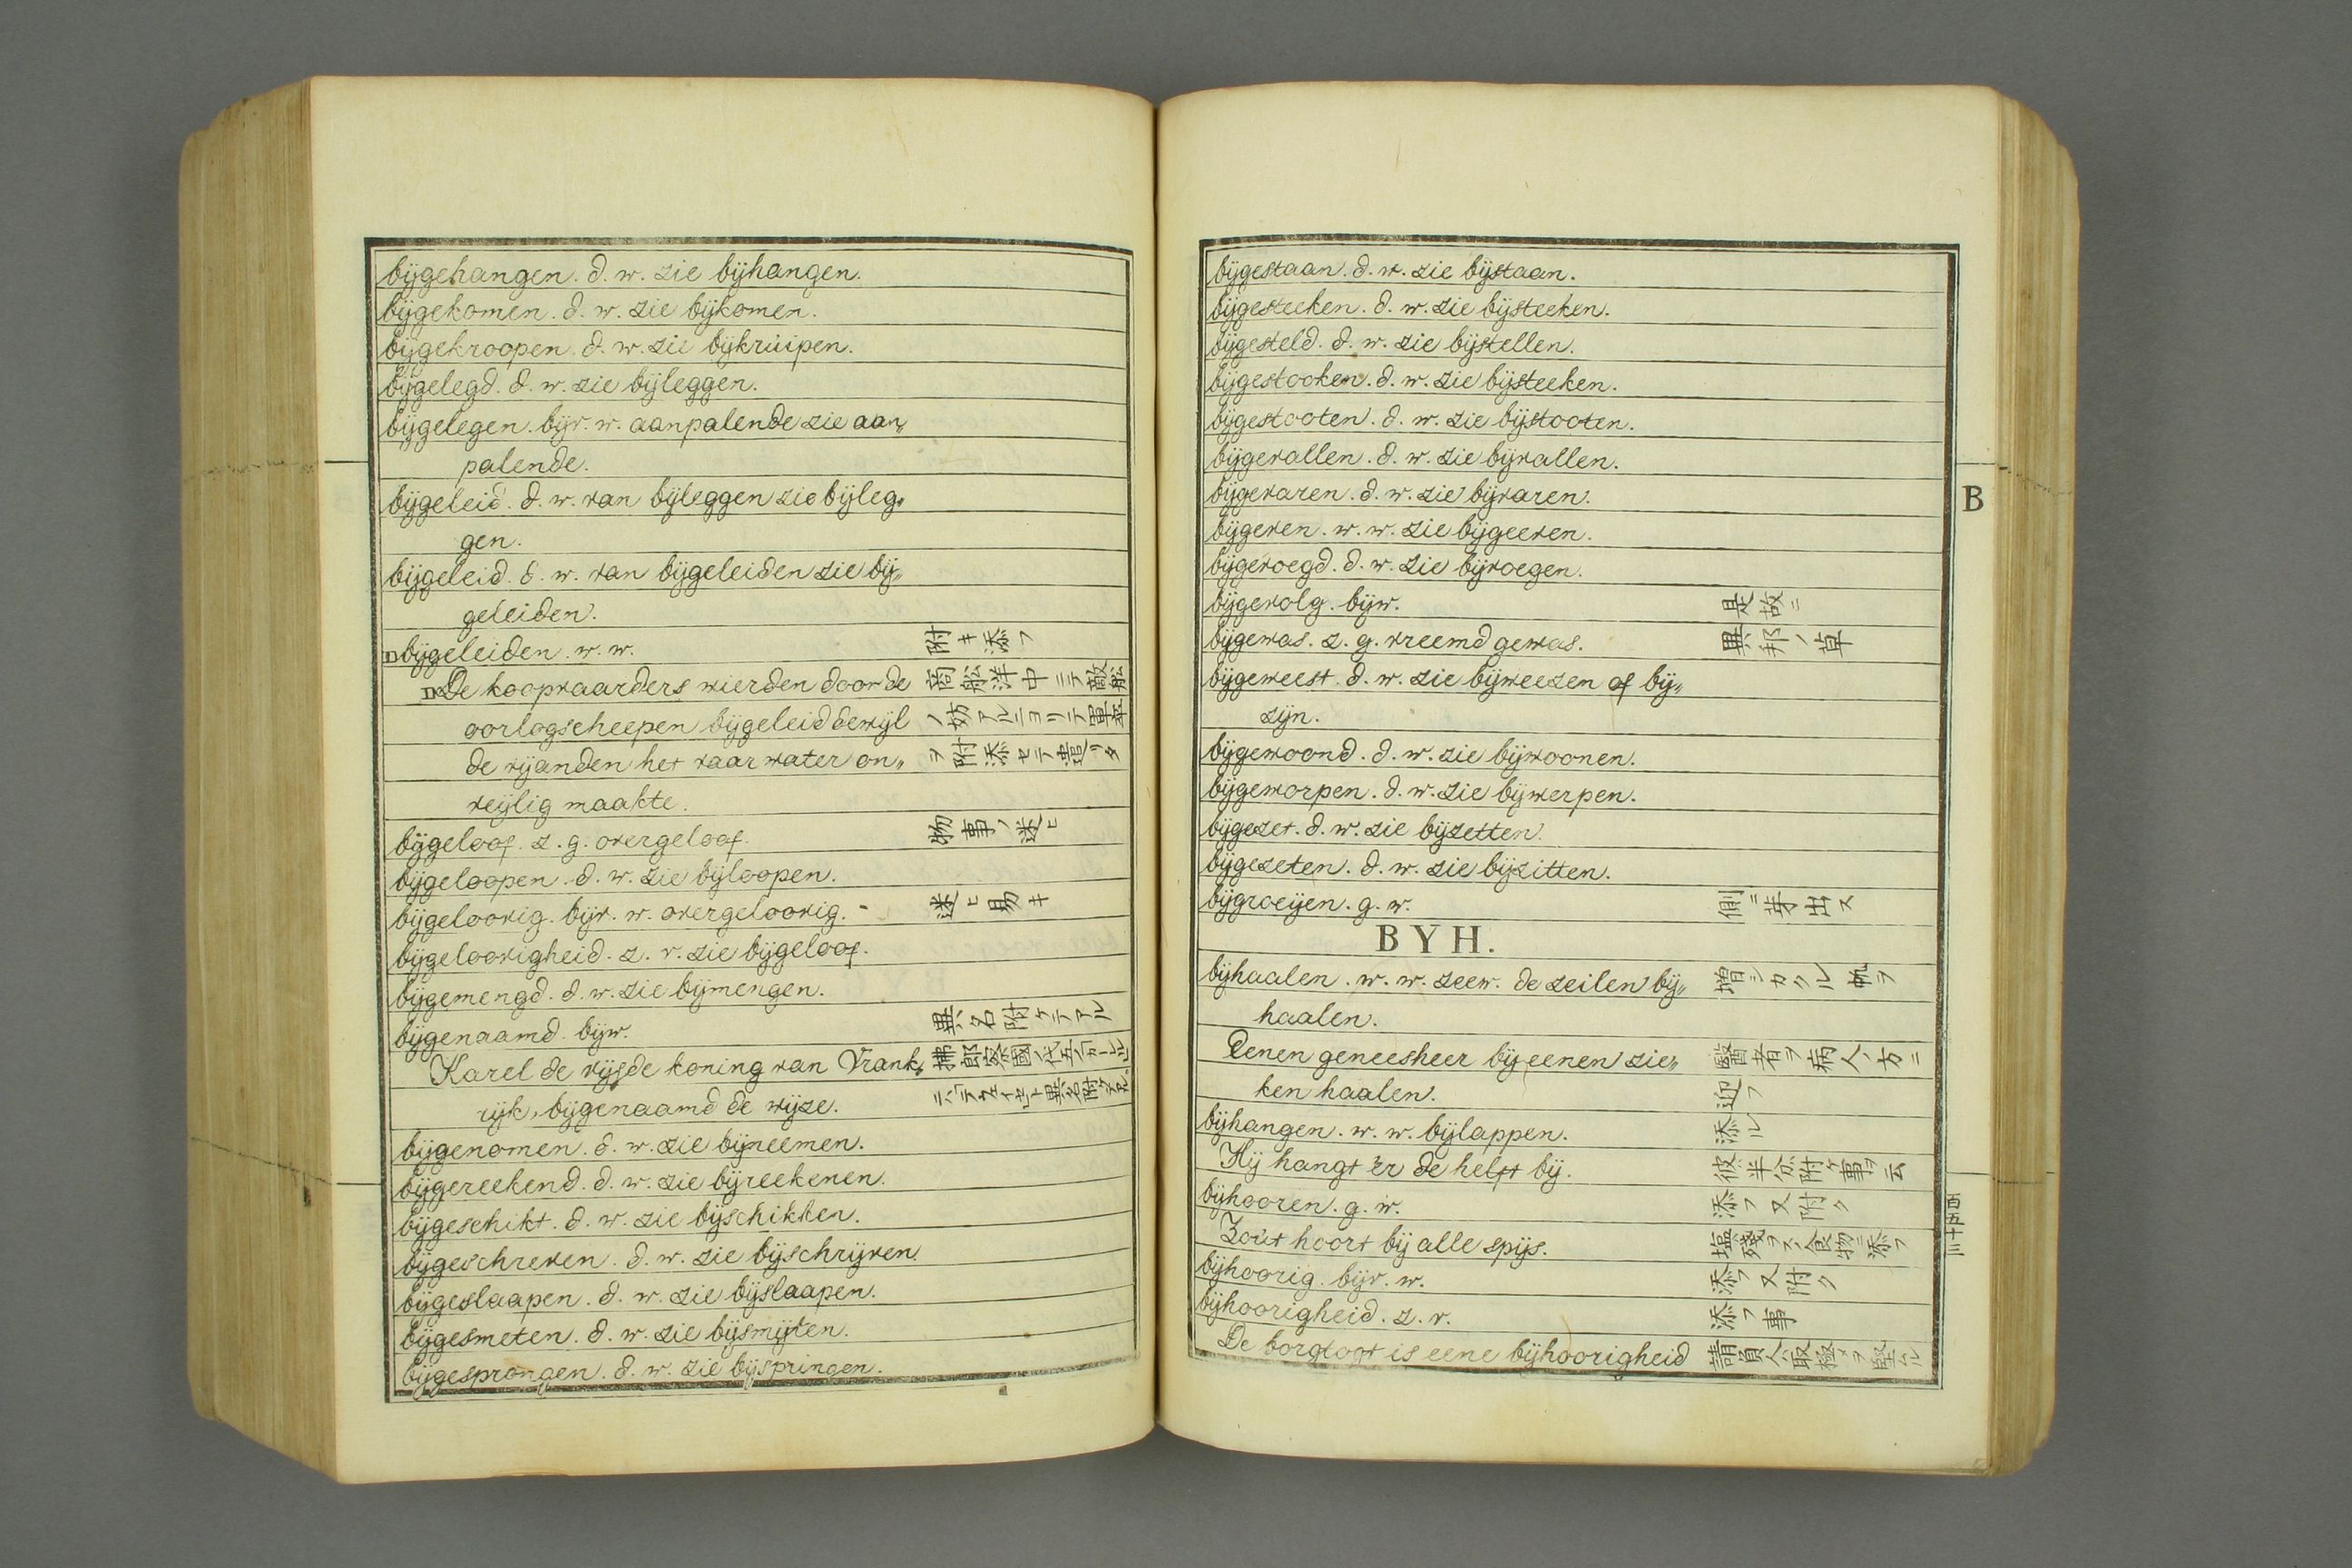 bijgehangen. d. w. zie bijhangen.
bijgekomen. d. w. zie bijkomen.
bijgekroopen. d. w. zie bijkruipen.
bijgelegd. d. w. zie bijleggen.
bijgelegen. bijv. w. aanpalende zie aan„
palende.
bijgeleid. d. w. van bijleggen zie bijleg„
gen.
bijgeleid. d. w. van bijgeleiden zie bij„
geleiden.
bijgeleiden. w. w. 附キ添フ
De koopvaarders wierden door de 商舩洋中ニテ敵舩
oorlogscheepen bijgeleid dewijl ノ妨アルニヨリテ軍卒
de vijanden het vaarwater on„ ヲ附添セテ遣リタ
veijlig maakte.
bijgeloof. z. g. overgeloof. 物事ノ迷ヒ
bijgeloopen. d. w. zie bijloopen.
bijgeloovig. bijv. w. overgeloovig. 迷ヒ易キ
bijgeloovigheid. z. v. zie bijgeloof.
bijgemengd. d. w. zie bijmengen.
bijgenaamd. bijw. 異名附ケテアル
Karel de vijfde koning van Vrank„ 拂郎察國ノ代五
rijk, bijgenaamd de wijze.
bijgenomen. d. w. zie bijneemen.
bijgereekend. d. w. zie bijreekenen.
bijgeschikt. d. w. zie bijschikken.
bijgeschreven. d. w. zie bijschrijven.
bijgeslaapen. d. w. zie bijslaapen.
bijgesmeten. d. w. zie bijsmijten.
bijgesprongen. d. w. zie bijspringen.
bijgestaan. d. w. zie bijstaan.
bijgesteeken. d. w. zie bijsteeken.
bijgesteld. d. w. zie bijstellen.
bijgestooken. d. w. zie bijsteeken.
bijgestooten. d. w. zie bijstooten.
bijgevallen. d. w. zie bijvallen.
bijgevaren. d. w. zie bijvaren.
B
bijgeven. w. w. zie bijgeeven.
bijgevoegd. d. w. zie bijvoegen.
bijgevolg. bijw. 是故ニ
bijgewas. z. g. vreemd gewas. 異邦ノ草
bijgeweest. d. w. zie bijweezen of bij„
zijn.
bijgewoond. d. w. zie bijwoonen.
bijgeworpen. d. w. zie bijwerpen.
bijgezet. d. w. zie bijzetten.
bijgezeten. d. w. zie bijzitten.
bijgroeijen. g. w. 側ニ芽出ス
BYH.
bijhaalen. w. w. zeew. de zeilen bij„ 増シカクル帆ヲ
haalen.
Eenen geneesheer bij eenen zie„ 醫者ヲ病人ノ方ニ
ken haalen. 迎フ
bijhangen. w. w. bijlappen. 添ル
Hij hangt 'er de helft bij. 彼半分附ケ事ヲ云
bijhooren. g. w. 添フ又附ク
Zout hoort bij alle spijs. 塩殘ラス食物ニ添フ
百五十三
bijhoorig. bijv. w. 添フ又附ク
bijhoorigheid. z. v. 添フ事
De borgtogt is eene bijhoorigheid 請負人ハ取極メヲ堅ムル